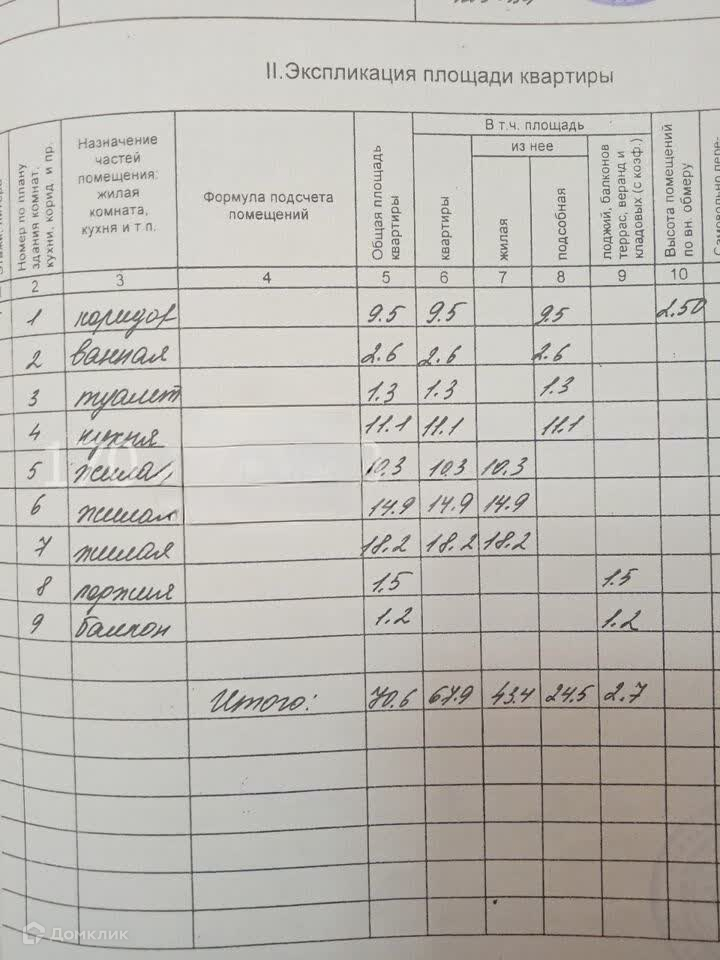 II.Экспликация площади квартиры
Номер по плану здания комнат, кухни, корид. и пр.
Назначение частей помещения: жилая комната, кухня и т.п.
Формула подсчета помещений
Общая площадь квартиры
В т.ч. площадь
из нее
квартиры
жилая
подсобная
лоджий, балконов террас, веранд и кладовых (с коэф.)
Высота помещений по вн. обмеру
2 3 4 5 6 7 8 9 10
1 коридор 9.5 9.5 9.5 2.50
2 ванная 2.6 2.6 2.6
3 туалет 1.3 1.3 1.3
4 кухня 11.1 11.1 11.1
5 жилая 10.3 10.3 10.3
6 жилая 14.9 14.9 14.9
7 жилая 18.2 18.2 18.2
8 лоджия 1.5 1.5
9 балкон 1.2 1.2
Итого: 70.6 67.9 43.4 24.5 2.7
Домклик